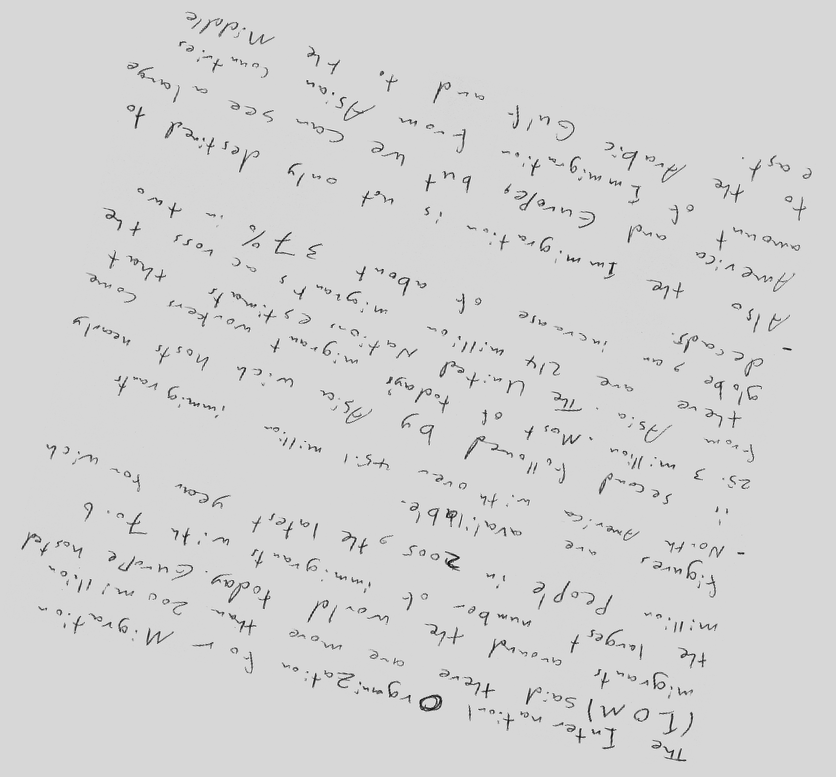 The International Organization for Migration
(IOM) said there are more than 200 million
migrants around the world today. Europe hosted
the largest number of immigrants with 70.6
million People in 2005, the latest year for wich
figures are available.
- North America with over 45.1 million immigrants
is second followed by Asia wich hosts nearly
25.3 million. Most of todays migrant workers come
from Asia. The United Nations estimats that
there are 214 million migrants across the
globe, an increase of about 37% in two
decads.
- Also the Immigration is not only destined to
America and Europe, but we can see a large
amount of Immigration from Asian countries
to the Arabic Gulf and to the Middle
east.